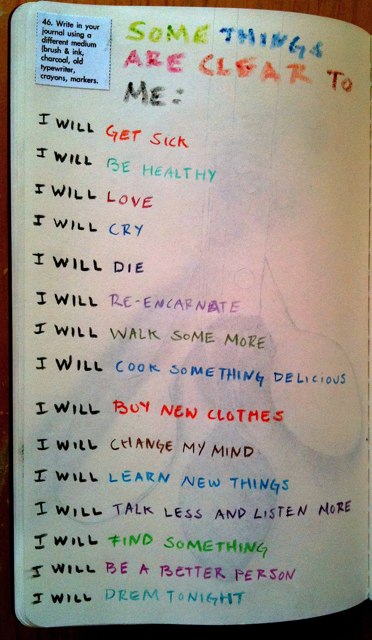 46. Write in your
journal using a
different medium
(brush & ink,
charcoal, old
typewriter,
crayons, markers.
SOME THINGS
ARE CLEAR TO
ME:
I WILL GET SICK
I WILL BE HEALTHY
I WILL LOVE
I WILL CRY
I WILL DIE
I WILL RE-ENCARNATE
I WILL WALK SOME MORE
I WILL COOK SOMETHING DELICIOUS
I WILL BUY NEW CLOTHES
I WILL CHANGE MY MIND
I WILL LEARN NEW THINGS
I WILL TALK LESS AND LISTEN MORE
I WILL FIND SOMETHING
I WILL BE A BETTER PERSON
I WILL DREM TONIGHT